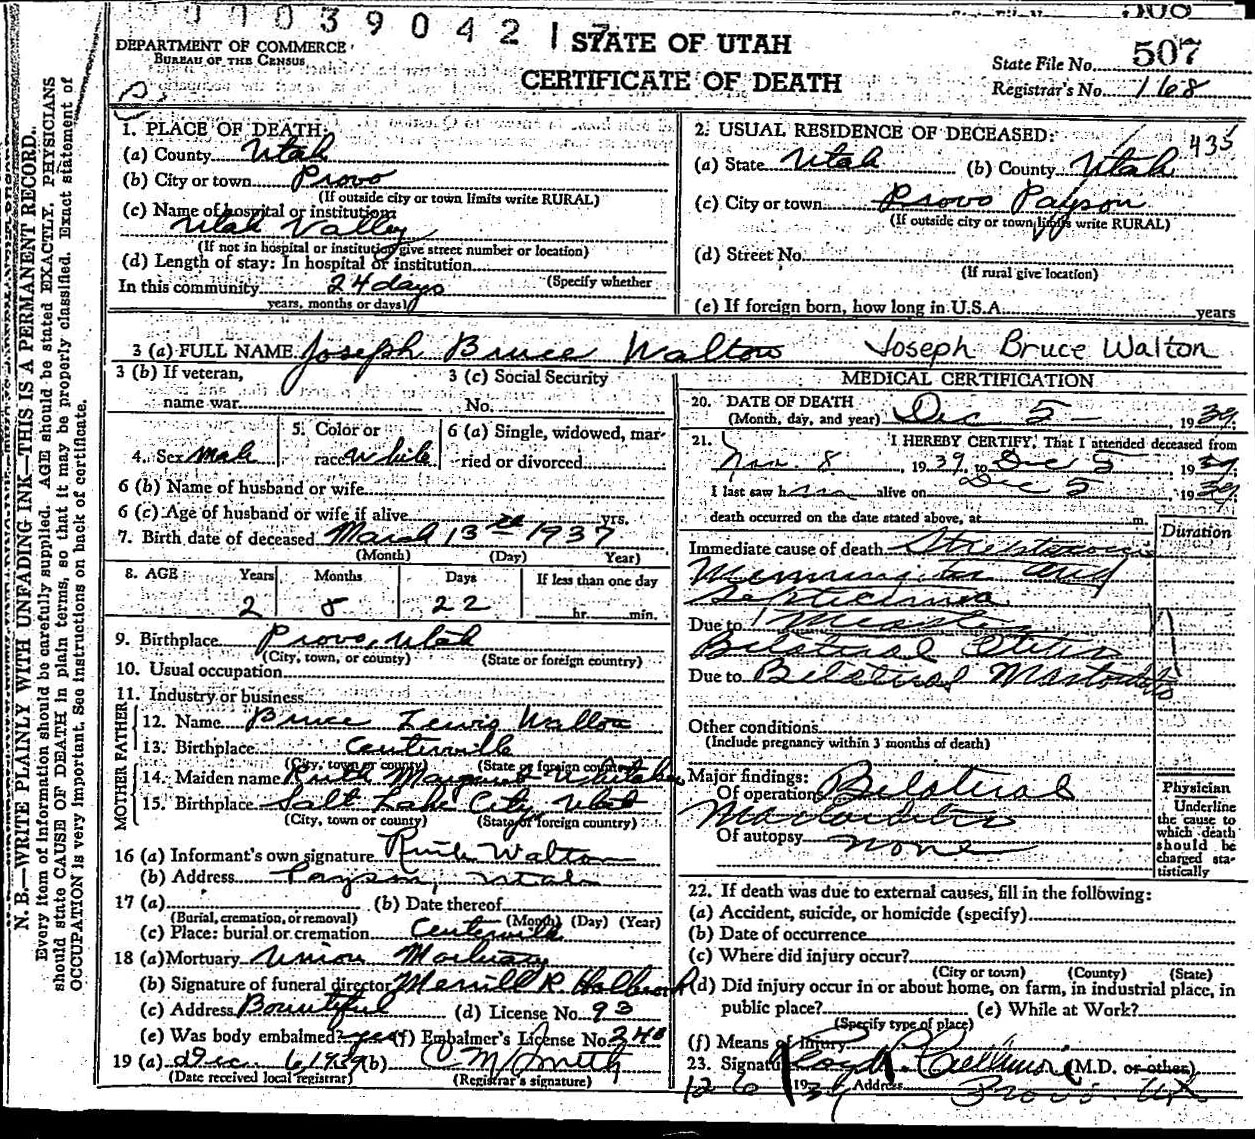 0 0 0 3 9 0 4 2 1 7
STATE OF UTAH
DEPARTMENT OF COMMERCE
BUREAU OF THE CENSUS
CERTIFICATE OF DEATH
State File No. 507
Registrar's No. 168
N. B.—WRITE PLAINLY WITH UNFADING INK—THIS IS A PERMANENT RECORD.
Every item of information should be carefully supplied. AGE should be stated EXACTLY. PHYSICIANS
should state CAUSE OF DEATH in plain terms, so that it may be properly classified. Exact statement of
OCCUPATION is very important. See instructions on back of certificate.
1. PLACE OF DEATH:
(a) County Utah
(b) City or town Provo
(If outside city or town limits write RURAL)
(c) Name of hospital or institution:
Utah Valley
(If not in hospital or institution give street number or location)
(d) Length of stay: In hospital or institution
In this community 24 days (Specify whether
years, months or days)
2. USUAL RESIDENCE OF DECEASED:
435
(a) State Utah (b) County Utah
(c) City or town Provo Payson
(If outside city or town limits write RURAL)
(d) Street No.
(If rural give location)
(e) If foreign born, how long in U.S.A. years
3 (a) FULL NAME Joseph Bruce Walton Joseph Bruce Walton
3 (b) If veteran,
name war
3 (c) Social Security
No.
4. Sex Male
5. Color or
race White
6 (a) Single, widowed, mar-
ried or divorced
6 (b) Name of husband or wife
6 (c) Age of husband or wife if alive yrs.
7. Birth date of deceased March 13 1937
(Month) (Day) Year)
8. AGE Years Months Days If less than one day
2 8 22 hr. min.
9. Birthplace Provo, Utah
(City, town, or county) (State or foreign country)
10. Usual occupation
11. Industry or business
FATHER
12. Name Bruce Lewis Walton
13. Birthplace Centerville
(City, town or county) (State or foreign country)
MOTHER
14. Maiden name Ruth Margaret Whitaker
15. Birthplace Salt Lake City Utah
(City, town or county) (State or foreign country)
16 (a) Informant's own signature Ruth Walton
(b) Address Payson, Utah
17 (a) (b) Date thereof
(Burial, cremation, or removal) (Month) (Day) (Year)
(c) Place: burial or cremation Centerville
18 (a) Mortuary Union Mortuary
(b) Signature of funeral director Merrill R. Holbrook
(c) Address Bountiful (d) License No. 93
(e) Was body embalmed? yes (f) Embalmer's License No. 340
19 (a) Dec. 6 1939 (b) C M Smith
(Date received local registrar) (Registrar's signature)
MEDICAL CERTIFICATION
20. DATE OF DEATH
(Month, day, and year) Dec 5 1939
21. I HEREBY CERTIFY, That I attended deceased from
Nov. 8, 1939, to Dec 5 1939
I last saw him alive on Dec 5 1939
death occurred on the date stated above, at m.
Duration
Immediate cause of death Streptococcic
Meningitis and
Septicimia
Due to Measles
Bilateral Otitis
Due to Bilateral Mastoiditis
Other conditions
(Include pregnancy within 3 months of death)
Major findings:
Of operations Bilateral
Mastoiditis
Of autopsy none
Physician
Underline
the cause to
which death
should be
charged sta-
tistically
22. If death was due to external causes, fill in the following:
(a) Accident, suicide, or homicide (specify)
(b) Date of occurrence
(c) Where did injury occur?
(City or town) (County) (State)
(d) Did injury occur in or about home, on farm, in industrial place, in
public place? (e) While at Work?
(Specify type of place)
(f) Means of Injury
23. Signature (M.D. or other)
12-6 1939 Address Provo Ut